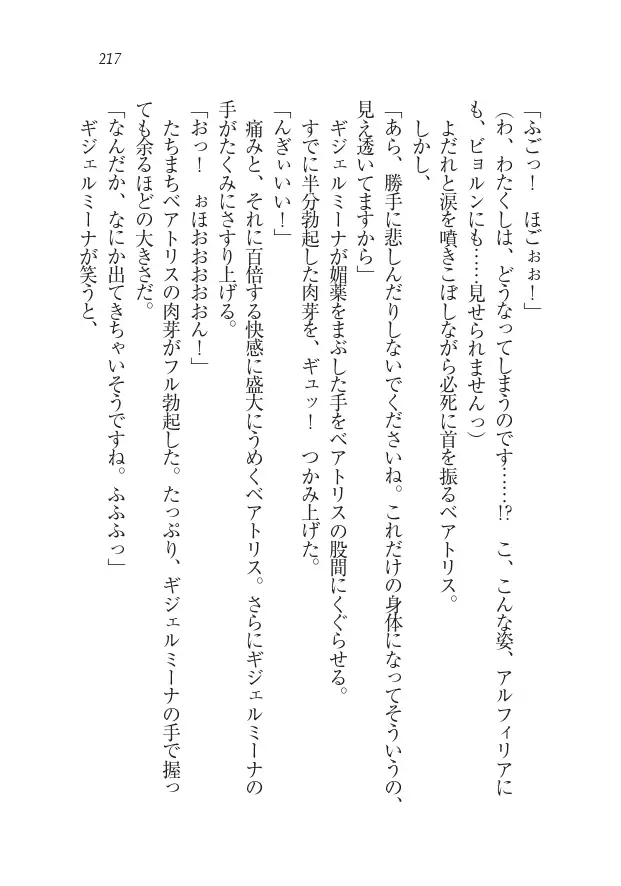 217
「ふごっ！　ほごぉぉ！」
（わ、わたくしは、どうなってしまうのです……!?　こ、こんな姿、アルフィリアに
も、ビョルンにも……見せられませんっ）
よだれと涙を噴きこぼしながら必死に首を振るベアトリス。
しかし、
「あら、勝手に悲しんだりしないでくださいね。これだけの身体になってそういうの、
見え透いてますから」
ギジェルミーナが媚薬をまぶした手をベアトリスの股間にくぐらせる。
すでに半分勃起した肉芽を、ギュッ！　つかみ上げた。
「んぎぃいい！」
痛みと、それに百倍する快感に盛大にうめくベアトリス。さらにギジェルミーナの
手がたくみにさすり上げる。
「おっ！　ぉほおおおおおん！」
たちまちベアトリスの肉芽がフル勃起した。たっぷり、ギジェルミーナの手で握っ
ても余るほどの大きさだ。
「なんだか、なにか出てきちゃいそうですね。ふふふっ」
ギジェルミーナが笑うと、